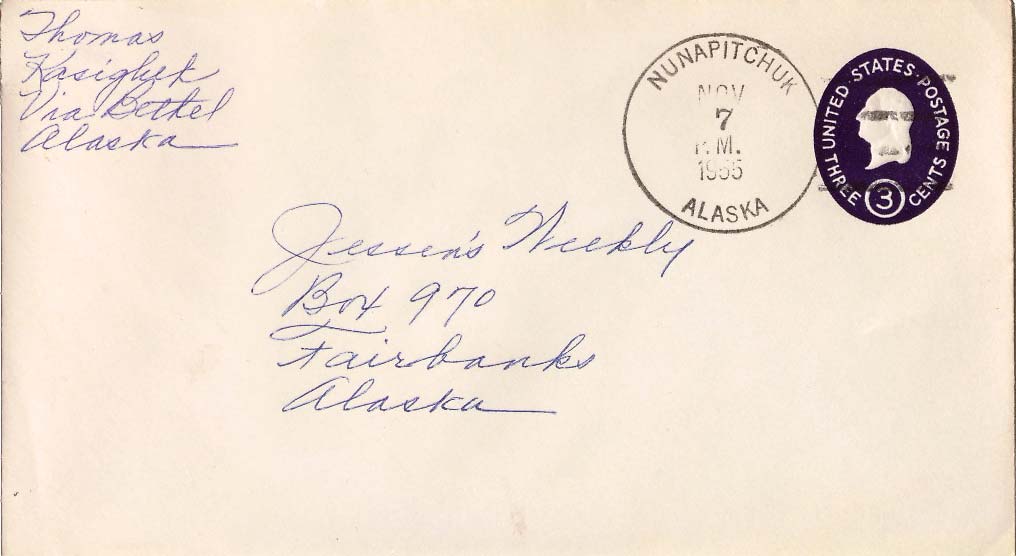 Thomas
Kasigluk
Via Bethel
Alaska
NUNAPITCHUK
NOV
7
P.M.
1955
ALASKA
UNITED STATES POSTAGE
THREE 3 CENTS
Jessen's Weekly
Box 970
Fairbanks
Alaska